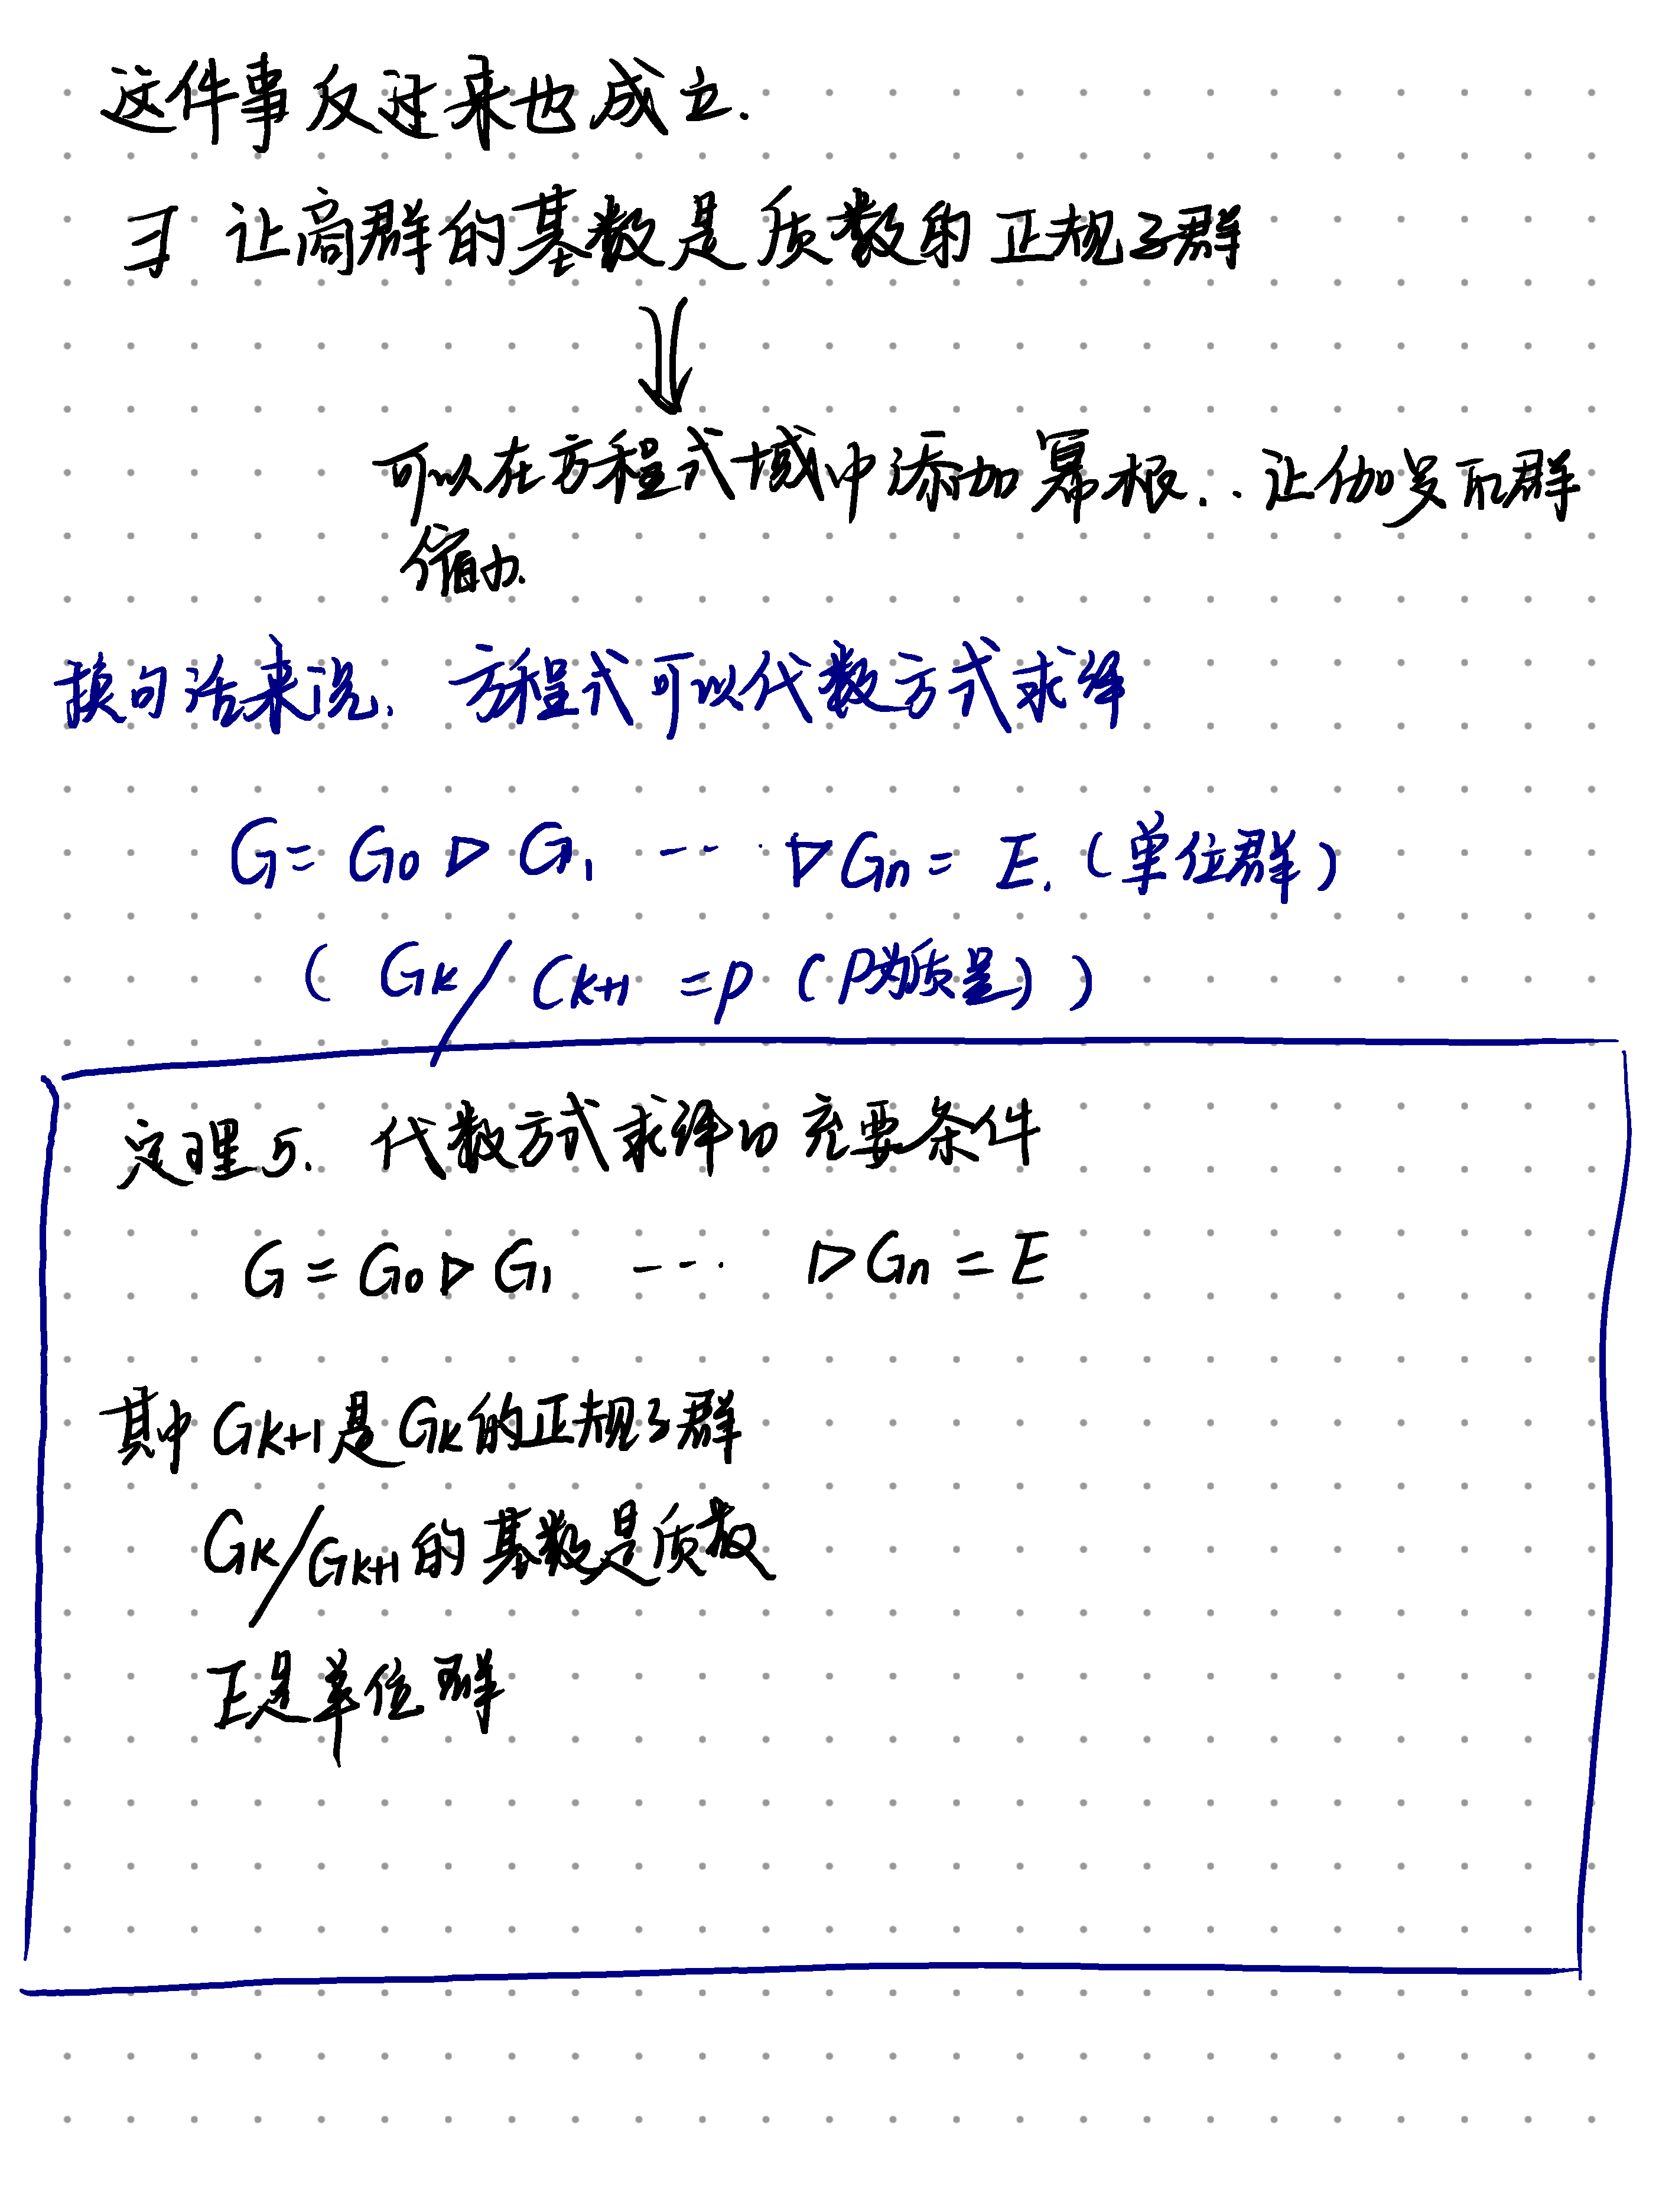 这件事反过来也成立.
∃ 让商群的基数是质数的正规子群
⇓
可以在方程式域中添加幂根.. 让伽罗瓦群
缩小.
换句话来说, 方程式可以代数方式求解
G = G₀ ▷ G₁ ---· ▷ Gn = E. (单位群)
( Gk / Ck+1 = p (P为质量) )
定理5. 代数方式求解的充要条件
G = G₀ ▷ G₁ ---· ▷ Gn = E
其中 Gk+1 是 Gk 的正规子群
Gk / Gk+1 的基数是质数
E是单位群